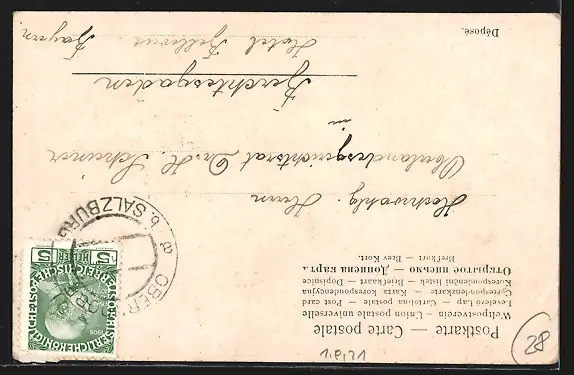 Postkarte — Carte postale
Weltpostverein — Union postale universelle
Levelező Lap — Cartolina postale — Post card
Correspondenzkarte — Karta korespondencyjna
Korespondenční lístek — Briefkaart — Dopisnice
Открытое письмо — Дописна карта.
Brefkort — Brev Kort.
Hochwohlg. Herrn
Oberlandesgerichtsrat Dr. H. Scheurer
in
Berchtesgaden
Hotel Bellevue
Bayern
Déposé.
OBER
b. SALZBURG
a
5 HELLER 5
1908
28